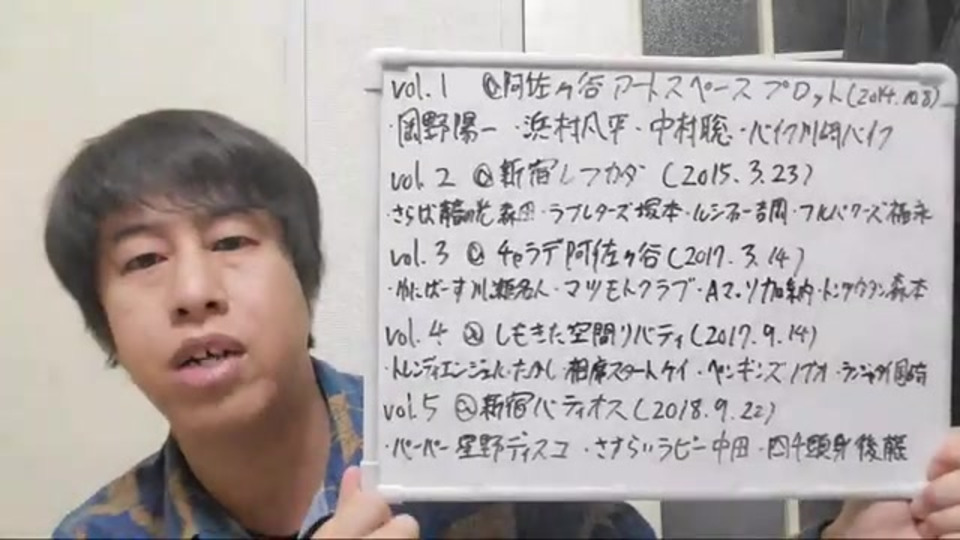 vol.1 @阿佐ヶ谷アートスペースプロット(2014.10.8)
・岡野陽一・浜村凡平・中村聡・バイク川崎バイク
vol.2 @新宿レフカダ(2015.3.23)
・さらば青春の光森田・ラブレターズ塚本・ルシファー吉岡・フルパワーズ福永
vol.3 @ 阿佐ヶ谷(2017.3.14)
・ゆにばーす川瀬名人・マツモトクラブ・Aマッソ加納・トンツカタン森本
vol.4 @しもきた空間リバティ(2017.9.14)
・トレンディエンジェルたかし・相席スタートケイ・ペンギンズノブオ・ランジャタイ国崎
vol.5 @新宿バティオス(2018.9.22)
・パーパー星野ディスコ・さすらいラビー中田・四千頭身後藤